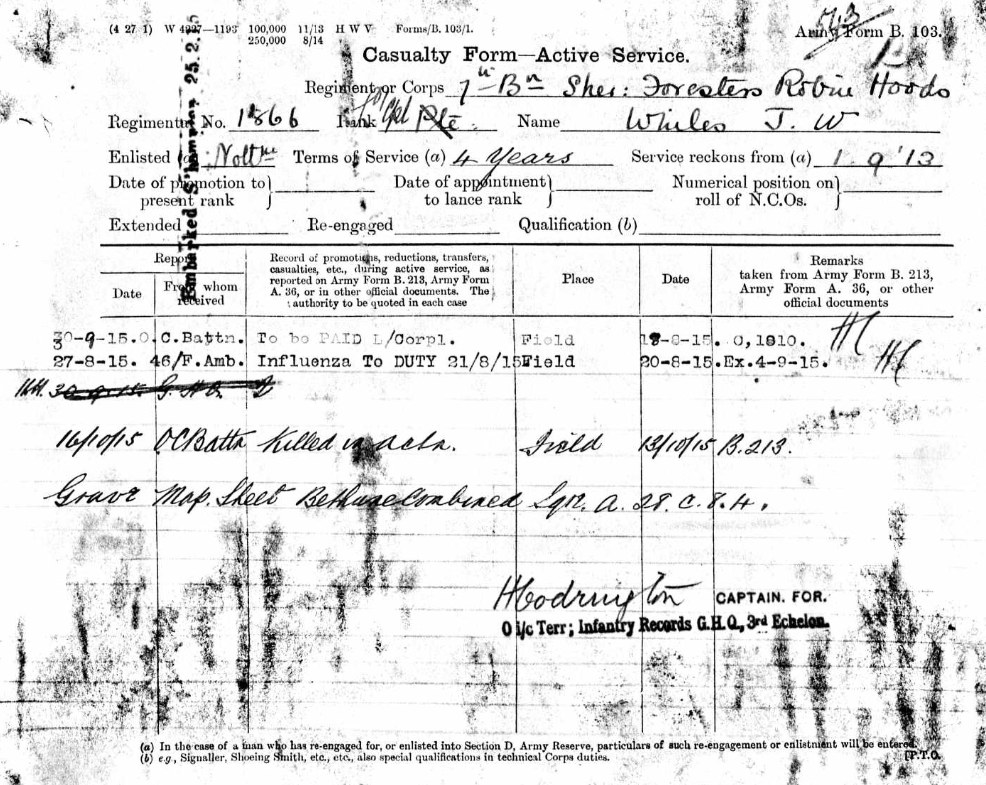 (4 27 1) W 4997—1193 100,000 11/13 H W V Forms/B. 103/1.
250,000 8/14
Army Form B. 103.
Casualty Form—Active Service.
Regiment or Corps 7th Bn Sher: Foresters Robin Hoods
Regimental No. 1866 Rank Pte. Name Whiles J. W
Enlisted (a) Terms of Service (a) 4 Years Service reckons from (a) 1 9 '13
Date of promotion to present rank } Date of appointment to lance rank } Numerical position on roll of N.C.Os. }
Extended Re-engaged Qualification (b)
Embarked S'hampton 25.2.15
Report
Date
From whom received
Record of promotions, reductions, transfers, casualties, etc., during active service, as reported on Army Form B. 213, Army Form A. 36, or in other official documents. The authority to be quoted in each case
Place
Date
Remarks
taken from Army Form B. 213, Army Form A. 36, or other official documents
30-9-15. O.C.Battn. To be PAID L/Corpl. Field -15. O,1810.
27-8-15. 46/F.Amb. Influenza To DUTY 21/8/15 Field 20-8-15. Ex.4-9-15.
16/10/15 OCBattn Killed in actn. Field 13/10/15 B.213.
Grave Map. Sheet Bethune Combined Sqr. A. 28. C. 8. 4.
HCodrington CAPTAIN. FOR.
O i/c Terr; Infantry Records G.H.Q., 3rd Echelon.
(a) In the case of a man who has re-engaged for, or enlisted into Section D, Army Reserve, particulars of such re-engagement or enlistment will be entered.
(b) e.g., Signaller, Shoeing Smith, etc., etc., also special qualifications in technical Corps duties. [P.T.O.